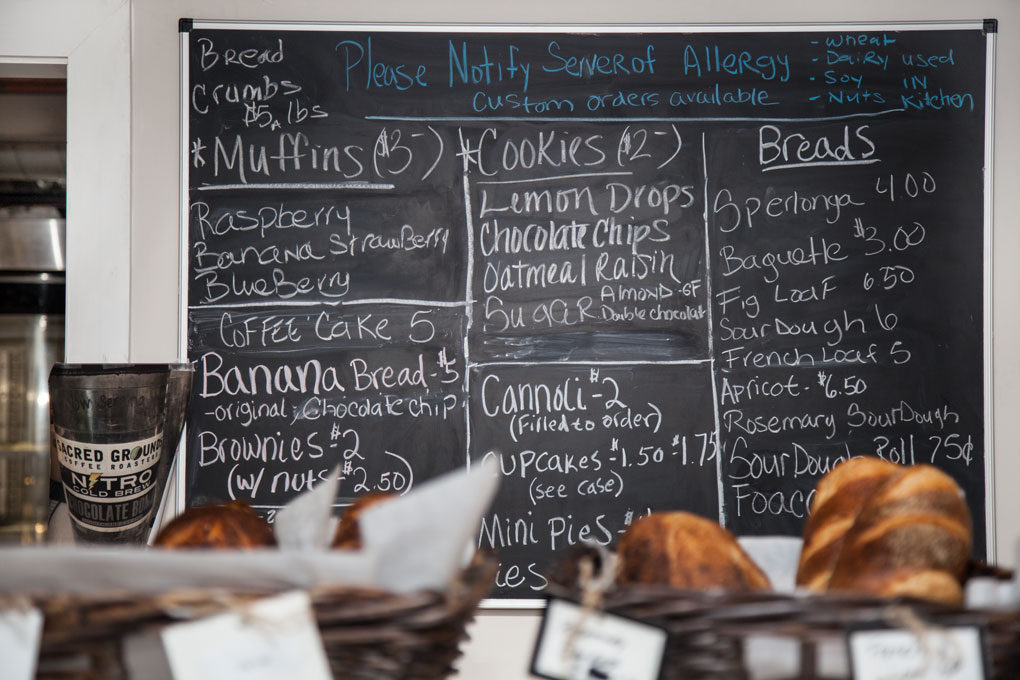 Bread
Crumbs
$5, lbs
Please Notify Server of Allergy
Custom orders available
- wheat
- Dairy used
- Soy IN
- Nuts Kitchen
*Muffins ($3-)
Raspberry
Banana Strawberry
BlueBerry
Coffee Cake 5
Banana Bread - $5
-original, Chocolate chip
Brownies $2
(w/ nuts $2.50)
*Cookies ($2-)
Lemon Drops
Chocolate Chips
Oatmeal Raisin
Sugar Almond-GF
Double chocolate
Cannoli - $2
(Filled to order)
Cupcakes $1.50 $1.75
(see case)
Mini Pies-
ies
Breads
Sperlonga 4.00
Baguette $3.00
Fig Loaf 6.50
Sour Dough 6
French Loaf 5
Apricot - $6.50
Rosemary SourDough
SourDough Roll 75¢
Foacc
SACRED GROUNDS
COFFEE ROASTERS
NITRO
COLD BREW
CHOCOLATE